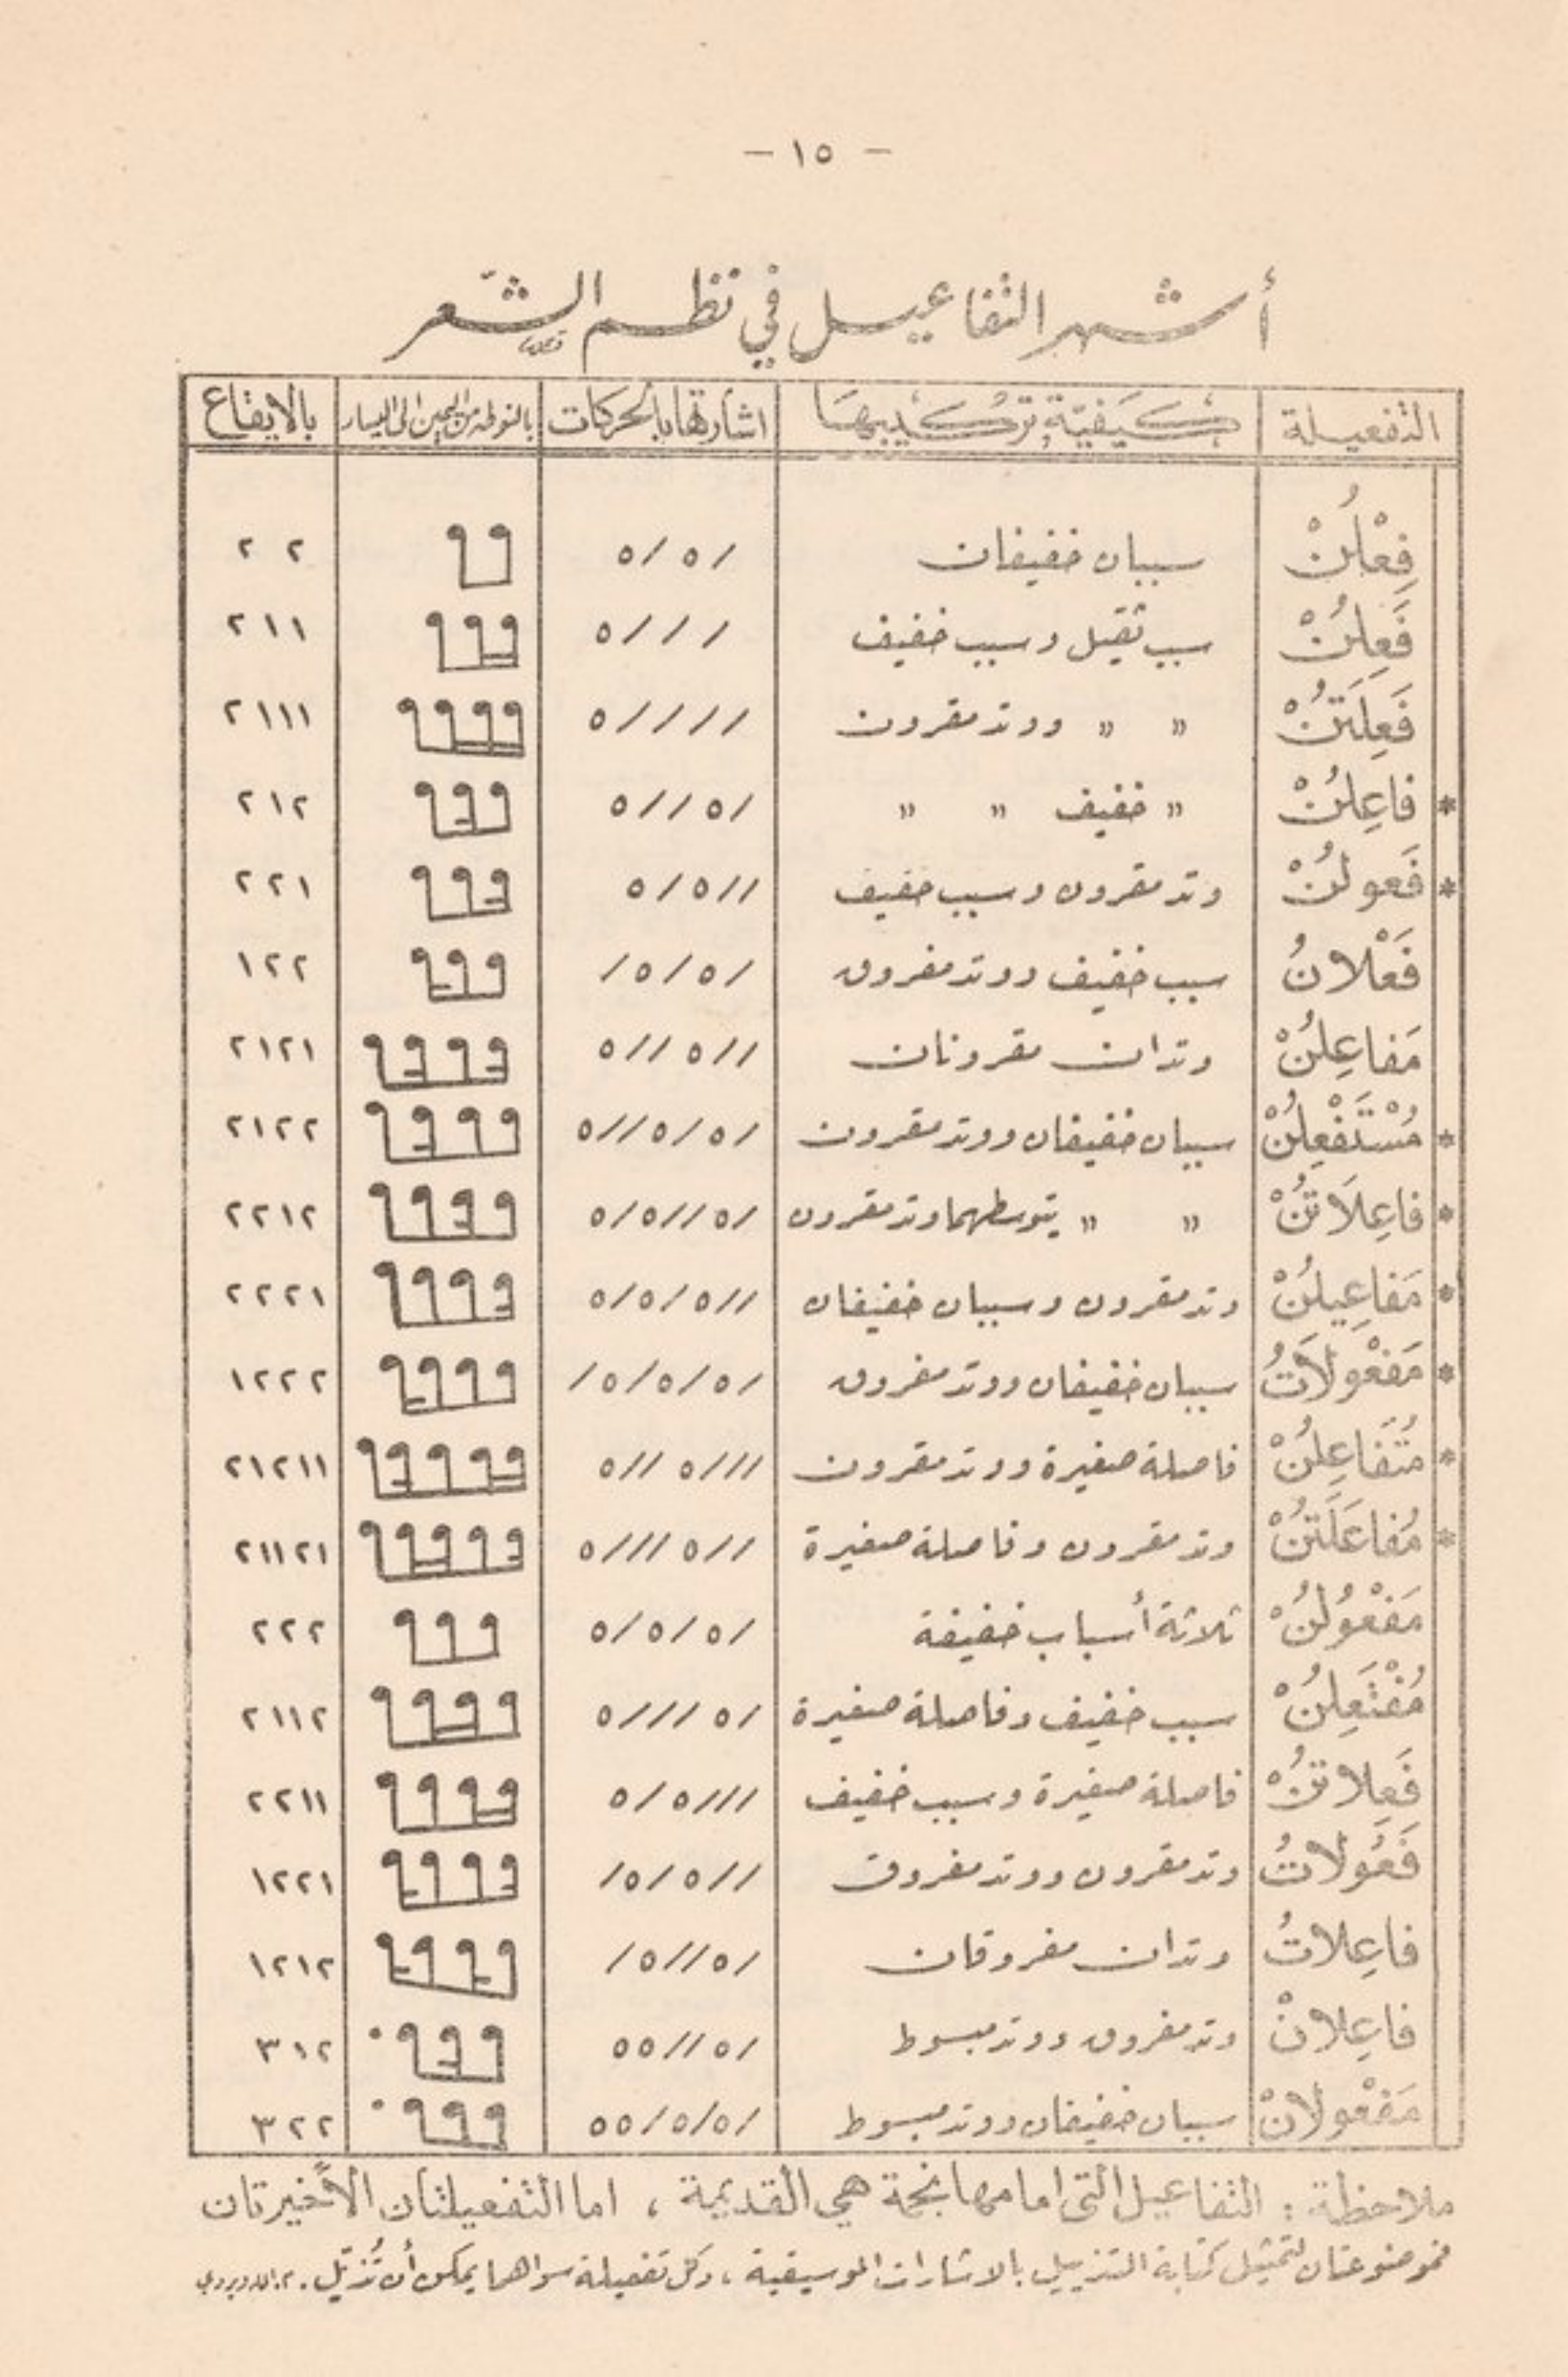 – ١٥ –
أشهر التفاعيل في نظم الشّعر
التفعيلة كيفيّة تركيبها اشارتها بالحركات بالنوطه من اليمين الى اليسار بالايقاع
فِعْلُنْ سببان خفيفان /٥/٥ ٢ ٢
فَعِلُنْ سبب ثقيل وسبب خفيف ///٥ ٢١١
فَعِلَتُنْ " " ووتد مقرون ////٥ ٢١١١
* فاعِلُنْ " خفيف " " /٥//٥ ٢١٢
* فَعولُنْ وتد مقرون وسبب خفيف //٥/٥ ٢٢١
فَعْلانُ سبب خفيف ووتد مفروق /٥/٥/ ١٢٢
مَفاعِلُنْ وتدان مقرونان //٥//٥ ٢١٢١
* مُسْتَفْعِلُنْ سببان خفيفان ووتد مقرون /٥/٥//٥ ٢١٢٢
* فاعِلَاتُنْ " " يتوسطهما وتد مقرون /٥//٥/٥ ٢٢١٢
* مَفاعِيلُنْ وتد مقرون وسببان خفيفان //٥/٥/٥ ٢٢٢١
* مَفْعُولَاتُ سببان خفيفان ووتد مفروق /٥/٥/٥/ ١٢٢٢
* مُتَفاعِلُنْ فاصلة صغيرة ووتد مقرون ///٥//٥ ٢١٢١١
* مُفاعَلَتُنْ وتد مقرون وفاصلة صغيرة //٥///٥ ٢١١٢١
مَفْعُولُنْ ثلاثة أسباب خفيفة /٥/٥/٥ ٢٢٢
مُفْتَعِلُنْ سبب خفيف وفاصلة صغيرة /٥///٥ ٢١١٢
فَعِلاتُنْ فاصلة صغيرة وسبب خفيف ///٥/٥ ٢٢١١
فَعُولاتُ وتد مقرون ووتد مفروق //٥/٥/ ١٢٢١
فاعِلاتُ وتدان مفروقان /٥//٥/ ١٢١٢
فاعِلانْ وتد مفروق ووتد مبسوط /٥//٥٥ ٣١٢
مَفْعُولانْ سببان خفيفان ووتد مبسوط /٥/٥/٥٥ ٣٢٢
ملاحظة : التفاعيل التي امامها نجمة هي القديمة ، اما التفعيلتان الأخيرتان
فموضوعتان لتمثيل كتابة التذييل بالاشارات الموسيقية ، وكل تفعيلة سواهما يمكن أن تُذيّل .